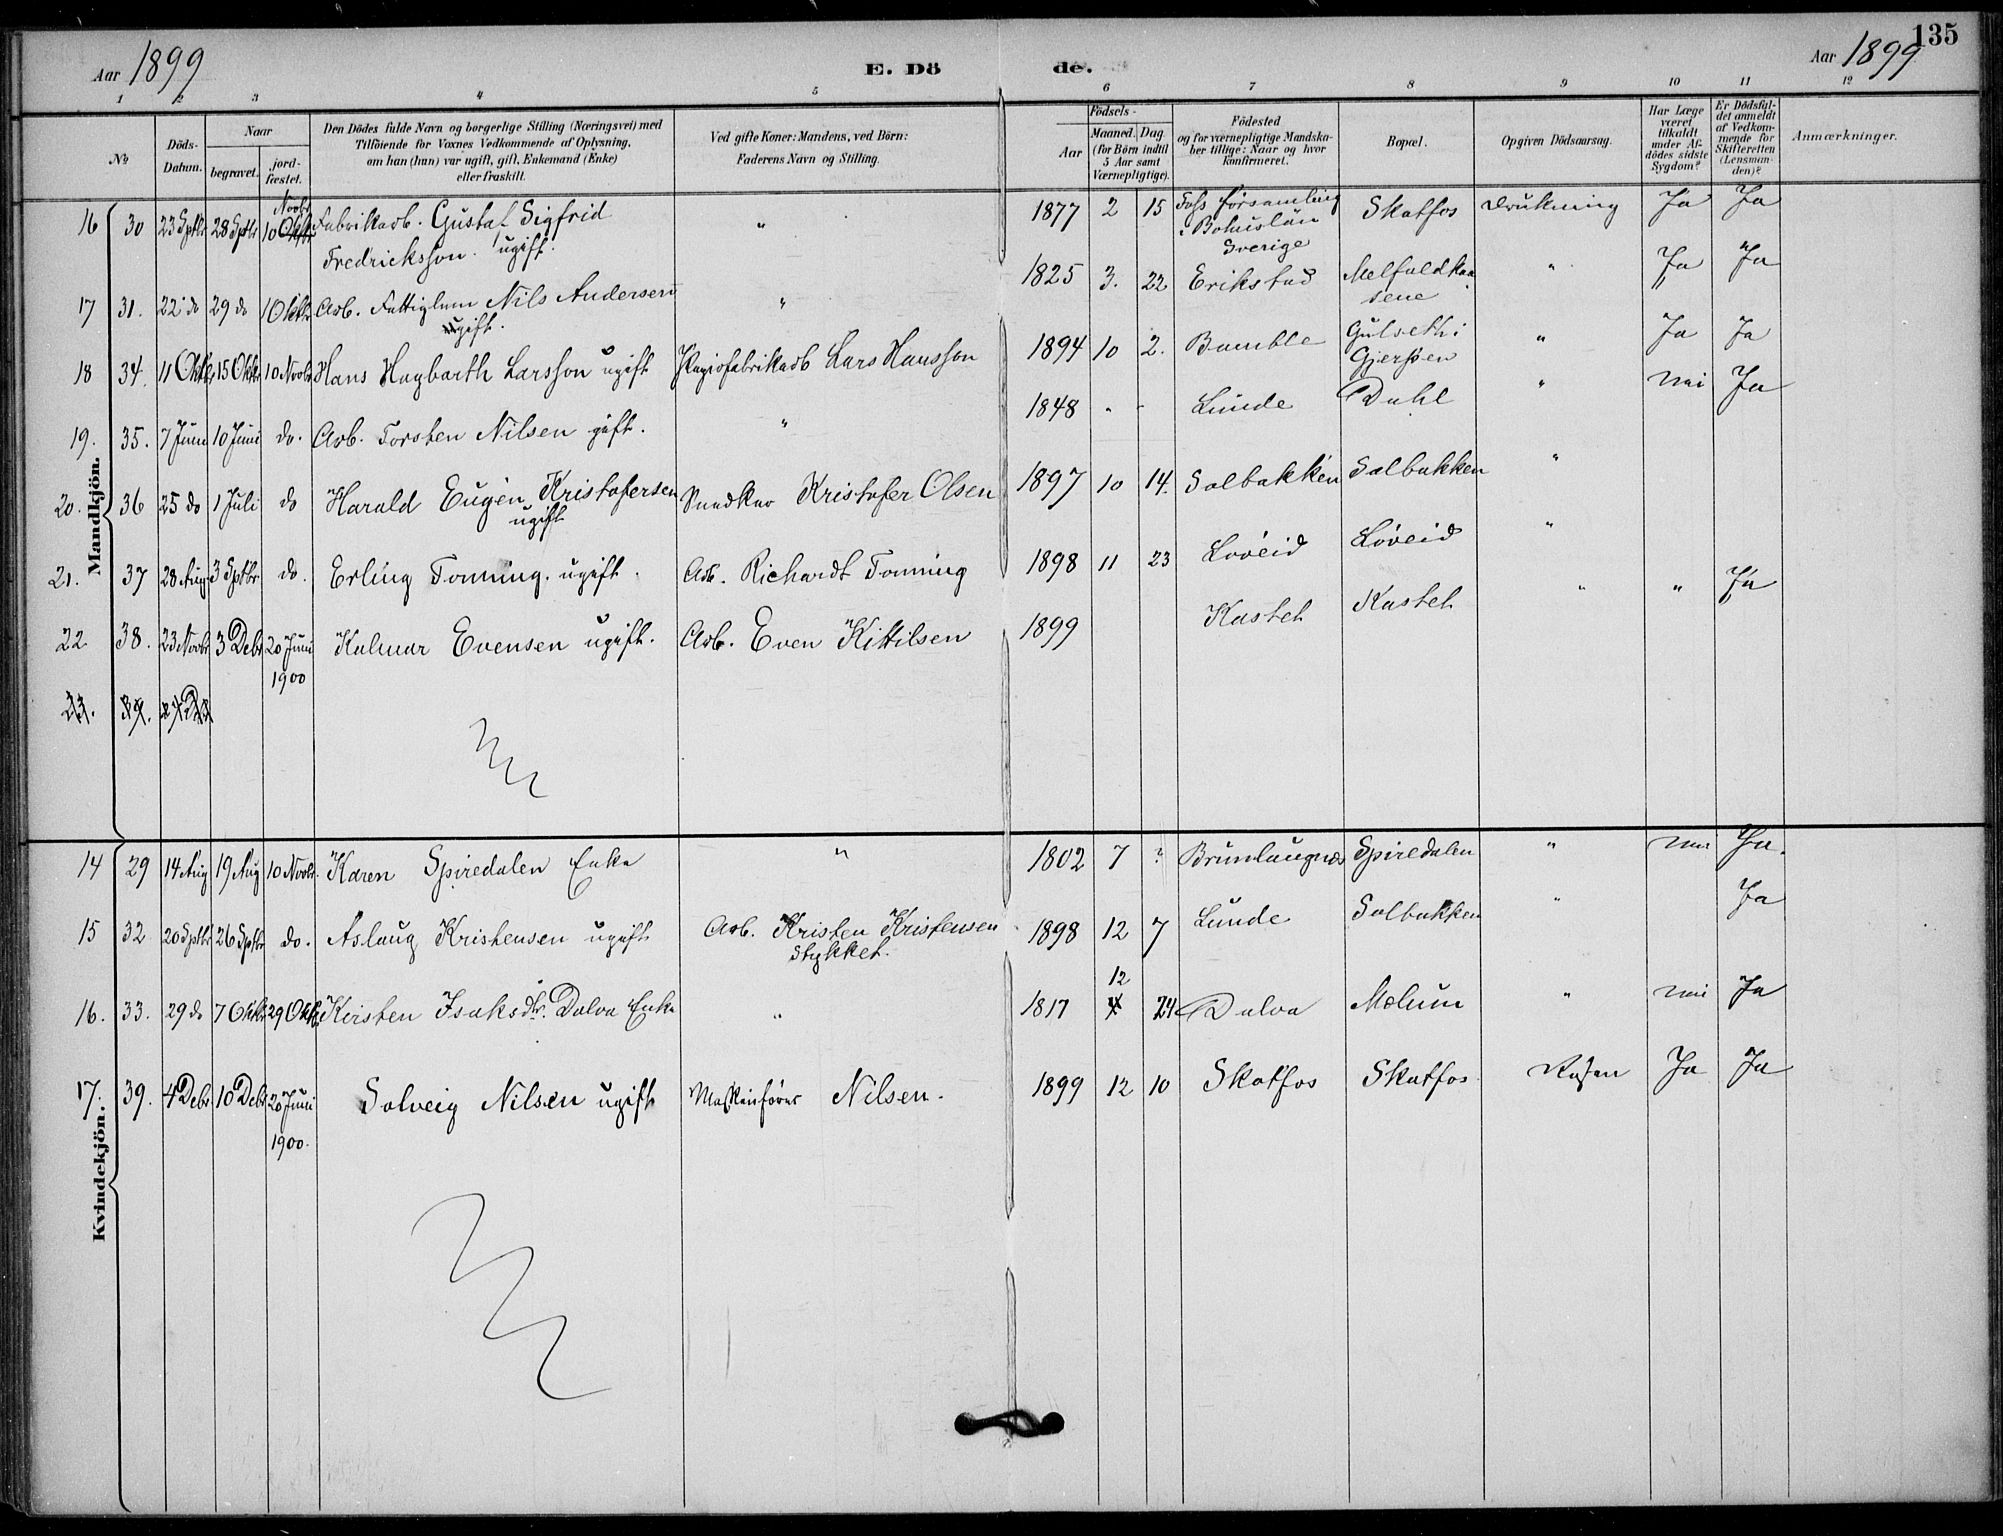 135
Aar 1899
E. Dö
de.
Aar 1899
1 2 3 4 5 6 7 8 9 10 11 12
No
Döds-Datum.
Naar
begravet.
jord-fæstet.
Den Dödes fulde Navn og borgerlige Stilling (Næringsvei) med
Tilföiende for Voxnes Vedkommende af Oplysning,
om han (hun) var ugift, gift, Enkemand (Enke)
eller fraskilt.
Ved gifte Koner: Mandens, ved Börn:
Faderens Navn og Stilling.
Födsels-
Aar
Maaned. Dag
(for Börn indtil
5 Aar samt
Værnepligtige).
Födested
og for værnepligtige Mandska-
ber tillige: Naar og hvor
konfirmeret.
Bopæl.
Opgiven Dödsaarsag.
Har Læge
været
tilkaldt
under Af-
dödes sidste
Sygdom?
Er Dödsfal-
det anmeldt
af Vedkom-
mende for
Skifteretten
(Lensman-
den)?
Anmærkninger.
Mandkjön.
16 30 23 Sptbr 28 Sptbr 10 Oktbr Novbr Fabrikarb. Gustaf Sigfrid " 1877 2 15 Foss församling Skotfos Drukning Ja Ja
Fredricksson. ugift. i Bohuslän
Sverige
17 31. 22 do 29 do 10 Oktbr Arb. Fattiglem Nils Andersen " 1825 3. 22 Erikstad Melfaldkaa " Ja Ja
ugift. sene
18 34. 11 Oktbr 15 Oktbr 10 Novbr Hans Hagbarth Larsson ugift Papirfabrikarb Lars Hansson 1894 10 2. Bamble Gulseth i " Ja Ja
Gjerpen
19. 35. 7 Juni 10 Juni do. Arb. Torsten Nilsen gift. " 1848 - - Lunde Dahl " nei Ja
20. 36 25 do 1 Juli do Harald Eugèn Kristofersen Snedker Kristofer Olsen 1897 10 14. Solbakken Solbakken "
ugift
21. 37 28 Aug 3 Sptbr do. Erling Tonning. ugift. Arb. Richardt Tonning 1898 11 23 Lövéid Löveid "
22 38. 23 Novbr 3 Debr 20 Juni Kalmar Evensen ugift. Arb. Even Kittilsen 1899 Kastet Kastet " " Ja
1900
23. 39.
Kvindekjön.
14 29 14 Aug 19 Aug 10 Novbr. Karen Spiredalen Enke " 1802 7 ? Brunlaugnæs Spiredalen " nei Ja.
15 32 20 Sptbr 26 Sptbr do. Aslaug Kristensen ugift Arb. Kristen Kristensen 1898 12 7 Lunde Solbakken " Ja
Stykket.
12
16. 33. 29 do 7 Oktbr 29 Oktbr Kirsten Isaksdr. Dalva Enke " 1817 4 24 Dalva Melum " nei Ja
17. 39. 4 Debr 10 Debr 20 Juni Solveig Nilsen ugift Maskinförer Nilsen. 1899 12 10 Skotfos Skotfos Rosen Ja Ja
1900.